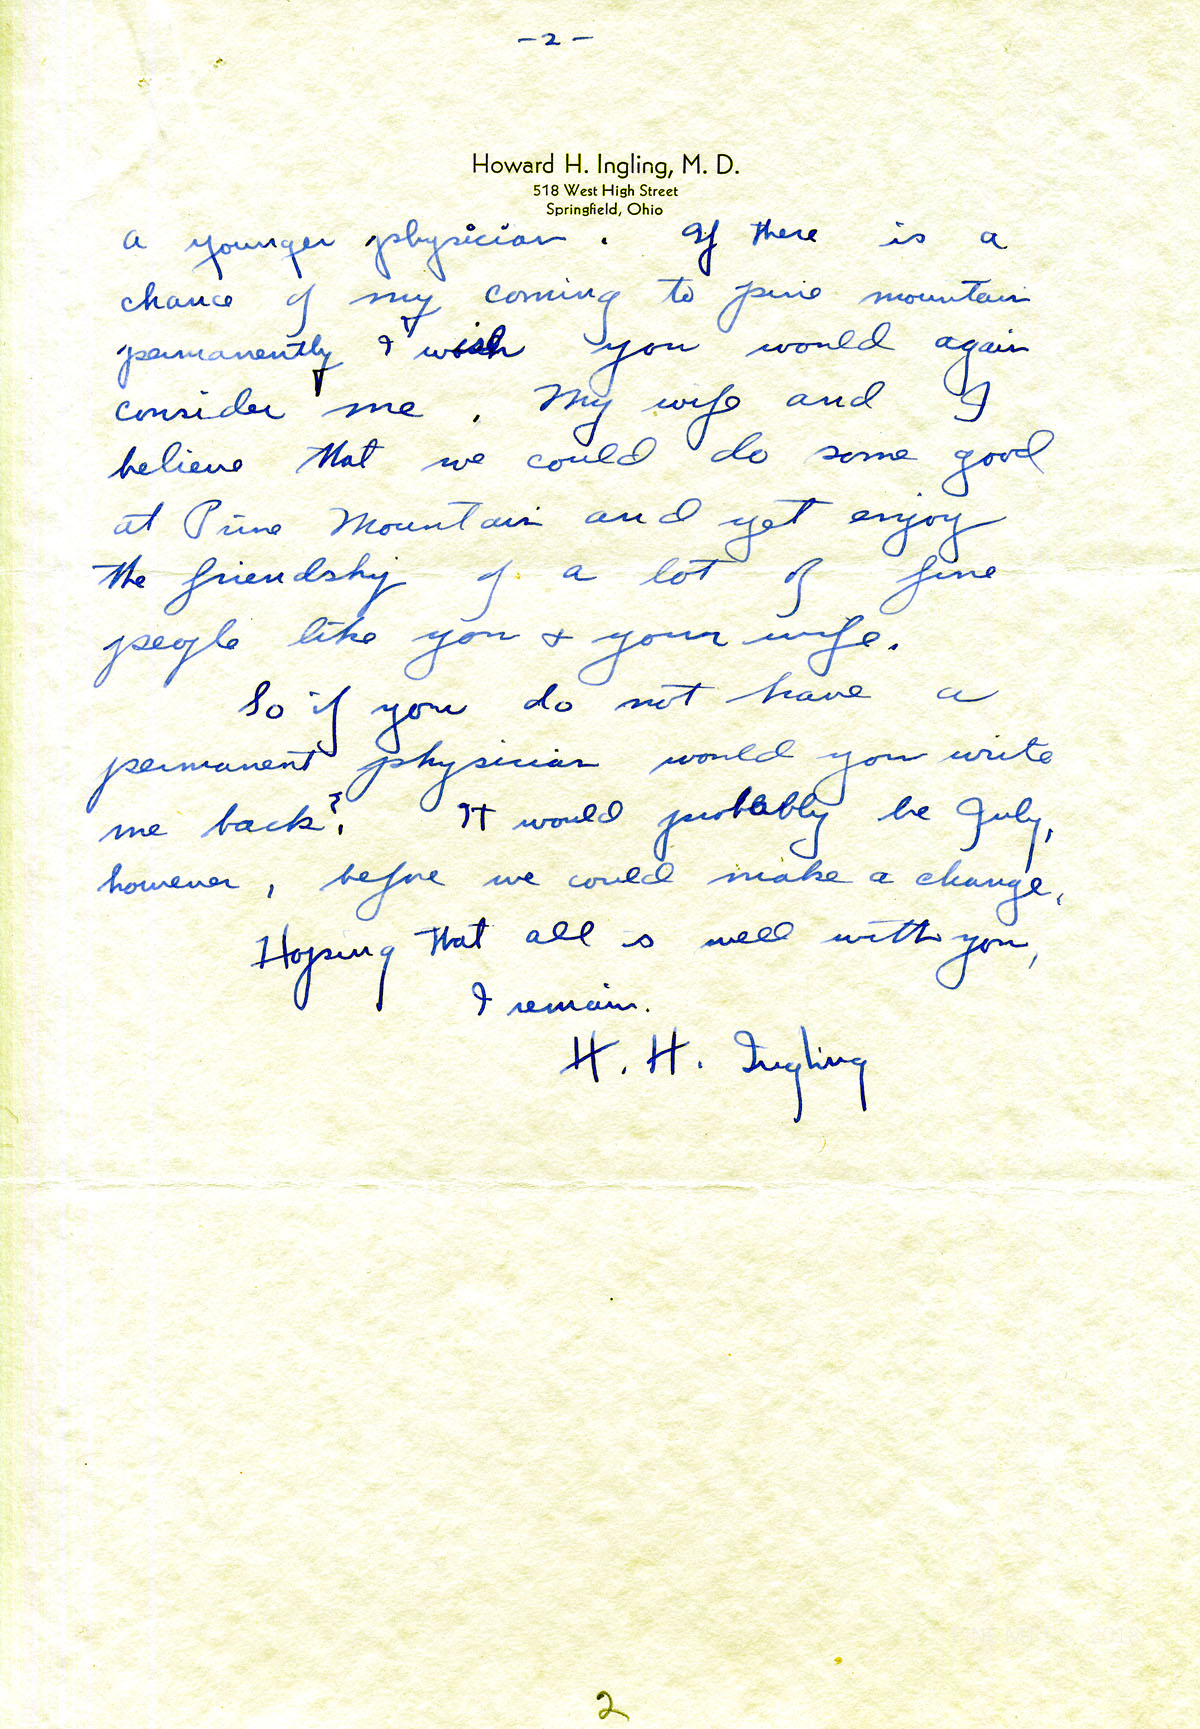 - 2 -
Howard H. Ingling, M. D.
518 West High Street
Springfield, Ohio
a younger physician. If there is a
chance of my coming to pine mountain
permanently I wish you would again
consider me. My wife and I
believe that we could do some good
at Pine Mountain and yet enjoy
the friendship of a lot of fine
people like you & your wife.
So if you do not have a
permanent physician would you write
me back? It would probably be July,
however, before we could make a change.
Hoping that all is well with you,
I remain.
H. H. Ingling
2